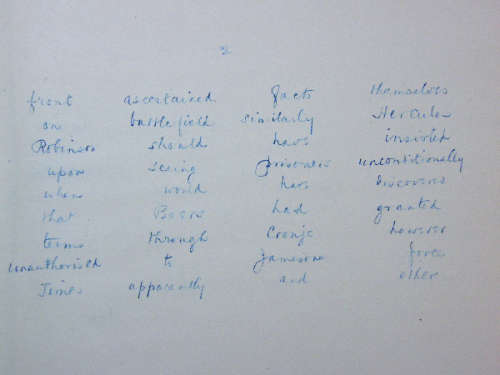 2
front ascertained facts themselves
on battlefield similarly Hercules
Robinson should have insisted
upon seeing prisoners unconditionally
when would have discovered
that Boers had granted
terms through Cronje however
unauthorised to Jameson force
Times apparently and other